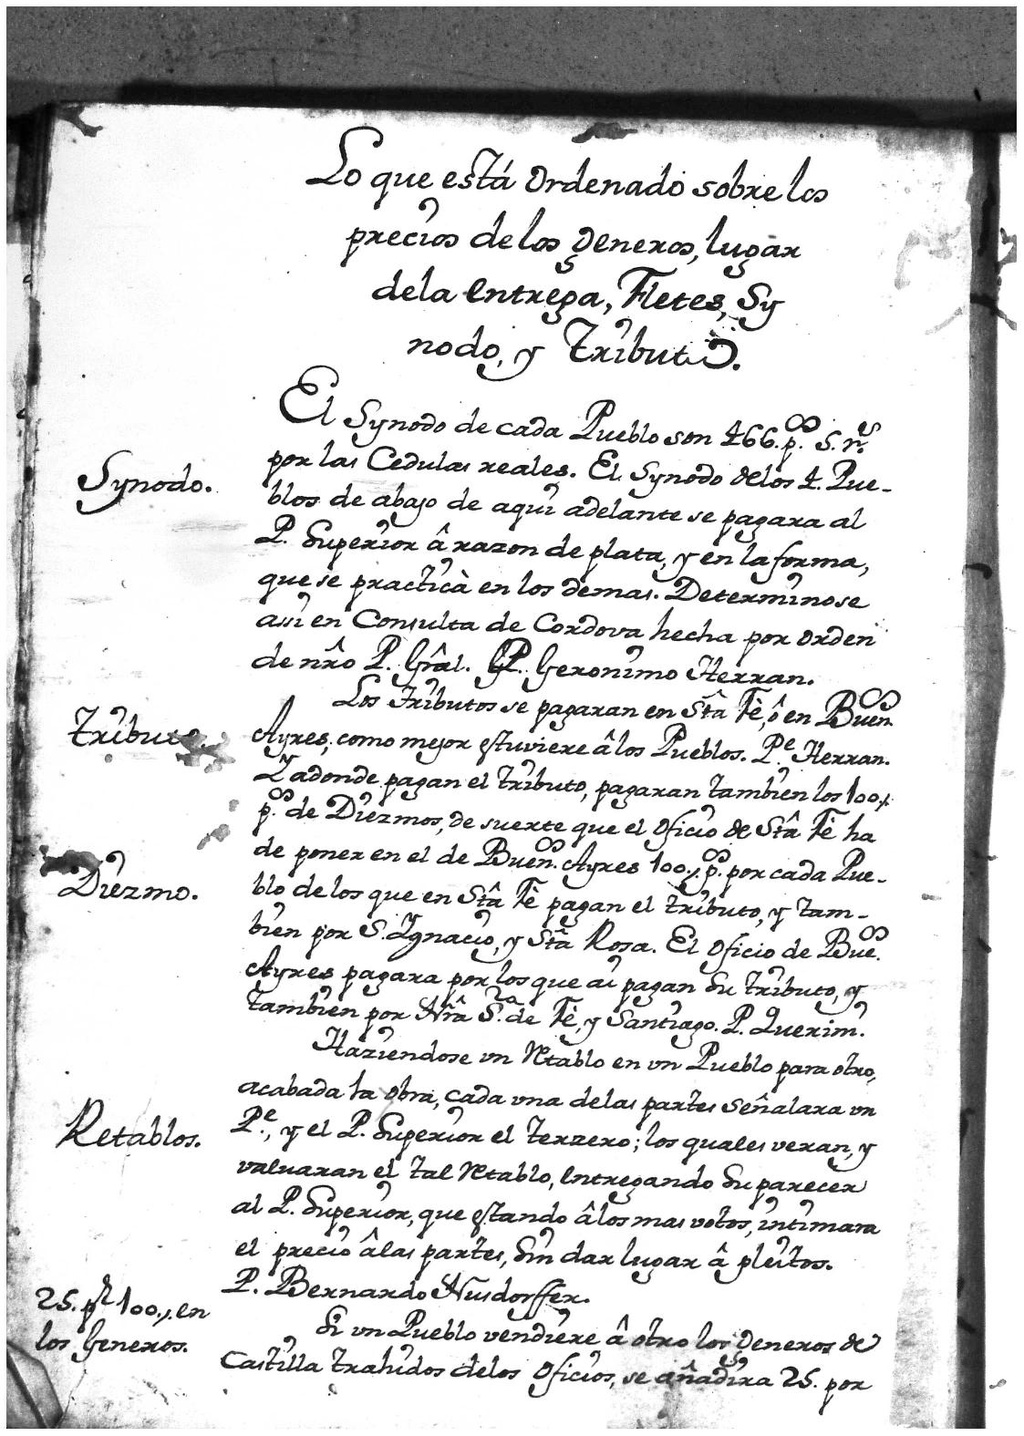 Lo que está Ordenado sobre los
precios de los Generos, lugar
dela entrega, Fletes, Sy
nodo, y Tributo.
El Synodo de cada Pueblo son 466. p.os s.n.s
Synodo.
por las Cedulas reales. El Synodo delos 4. Pue-
blos de abajo de aqui adelante se pagara al
P. Superior â razon de plata, y en la forma,
que se practicà en los demas. Determinose
asi en Consulta de Cordova hecha por orden
de nr̂o P. Grâl. P. Geronimo Herran.
Los tributos se pagaran en Stâ Fè, ô en Buen.os
Tributo.
Ayres, como mejor estuviere â los Pueblos. P.e Herran.
Y adonde pagan el tributo, pagaran tambien los 100.
p.os de Diezmos, de suerte que el oficio de Stâ Fè ha
de poner en el de Buen.os Ayres 100. p.os por cada Pue-
Diezmo.
blo de los que en Stâ Fè pagan el tributo, y tam-
bien por S. Ygnacio, y Stâ Rosa. El oficio de Bue.os
Ayres pagara por los que ai pagan su tributo, y
tambien por Nr̂a S.ra de Fè, y Santiago. P. Querim.
Haziendose vn Retablo en vn Pueblo para otro,
acabada la obra, cada vna delas partes señalara vn
Retablos.
P.e, y el P. Superior el terzero; los quales veran, y
valuaran el tal Retablo, entregando su parecer
al P. Superior, que estando â los mas votos, intimara
el precio â las partes, sin dar lugar â pleitos.
P. Bernardo Nusdorffer.
25. pr 100. en
los Generos.
Si vn Pueblo vendiere â otro los generos de
Castilla trahidos delos oficios, se añadira 25. por